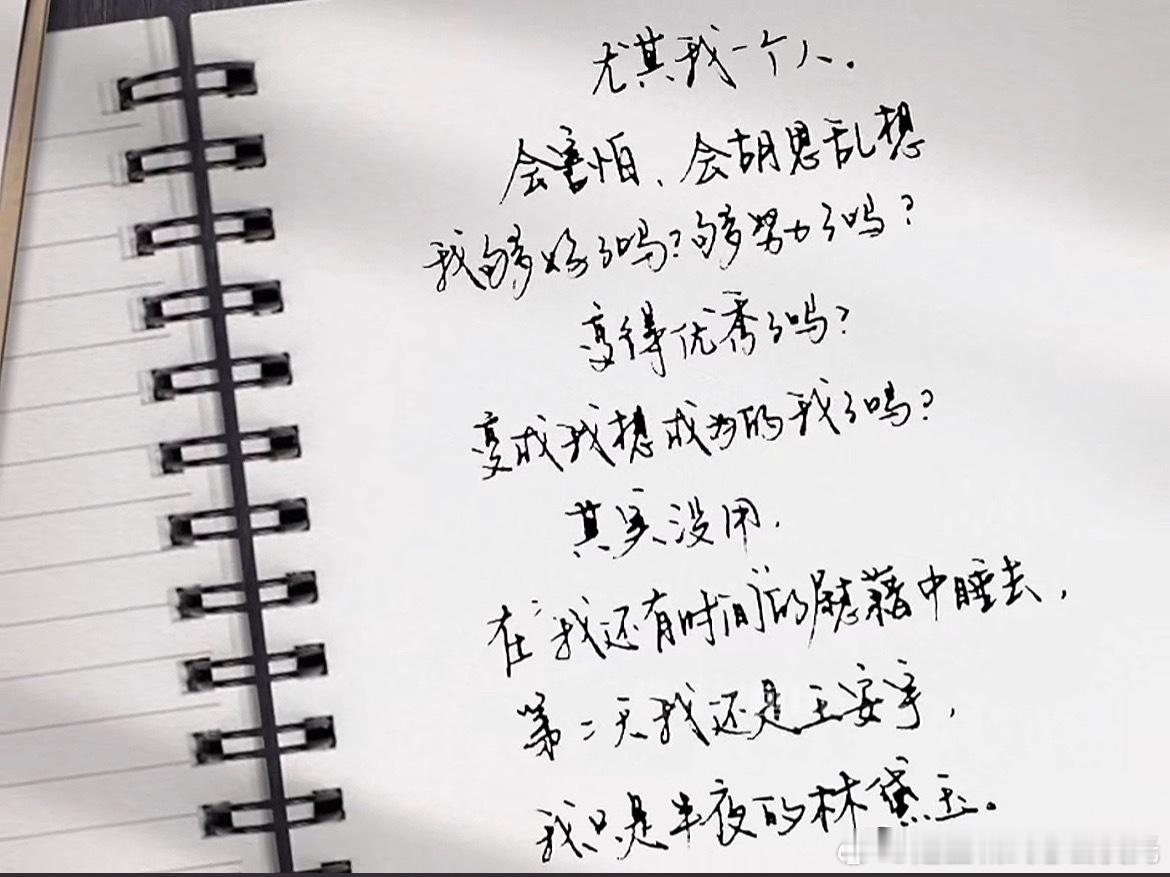 尤其我一个人.
会害怕、会胡思乱想
我够好了吗?够努力了吗?
变得优秀了吗?
变成我想成为的我了吗?
其实没用.
在"我还有时间"的慰藉中睡去,
第二天我还是王安宇,
我只是半夜的林黛玉。